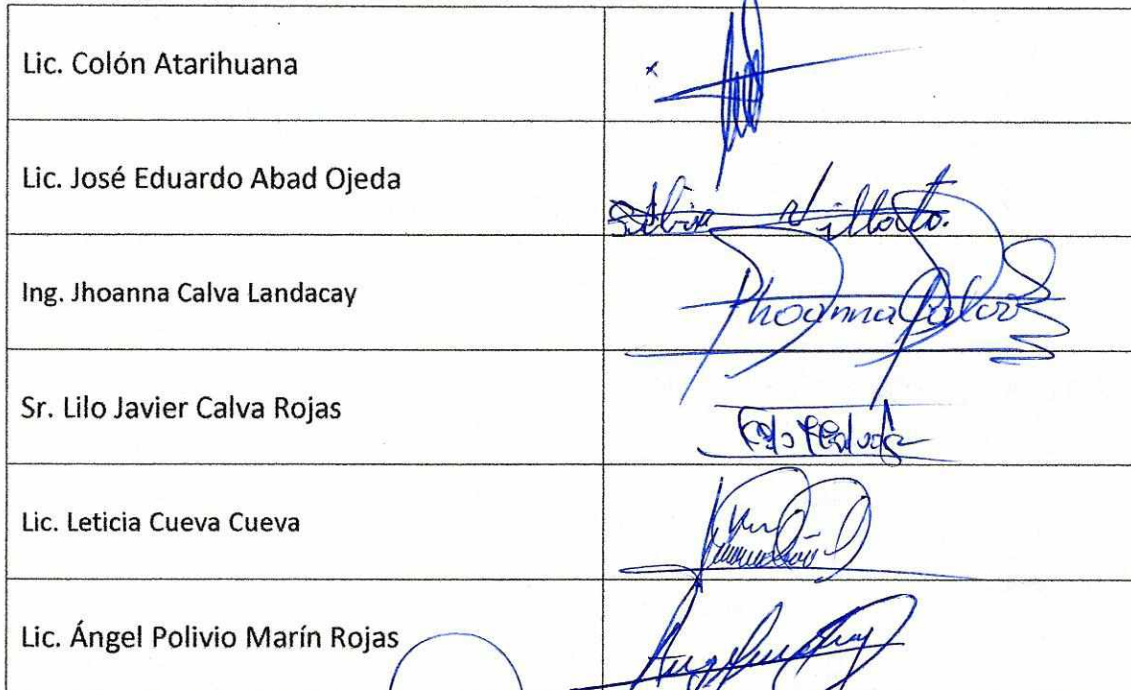 Lic. Colón Atarihuana
x
Lic. José Eduardo Abad Ojeda
Ing. Jhoanna Calva Landacay
Jhoanna Calva
Sr. Lilo Javier Calva Rojas
Lic. Leticia Cueva Cueva
Lic. Ángel Polivio Marín Rojas